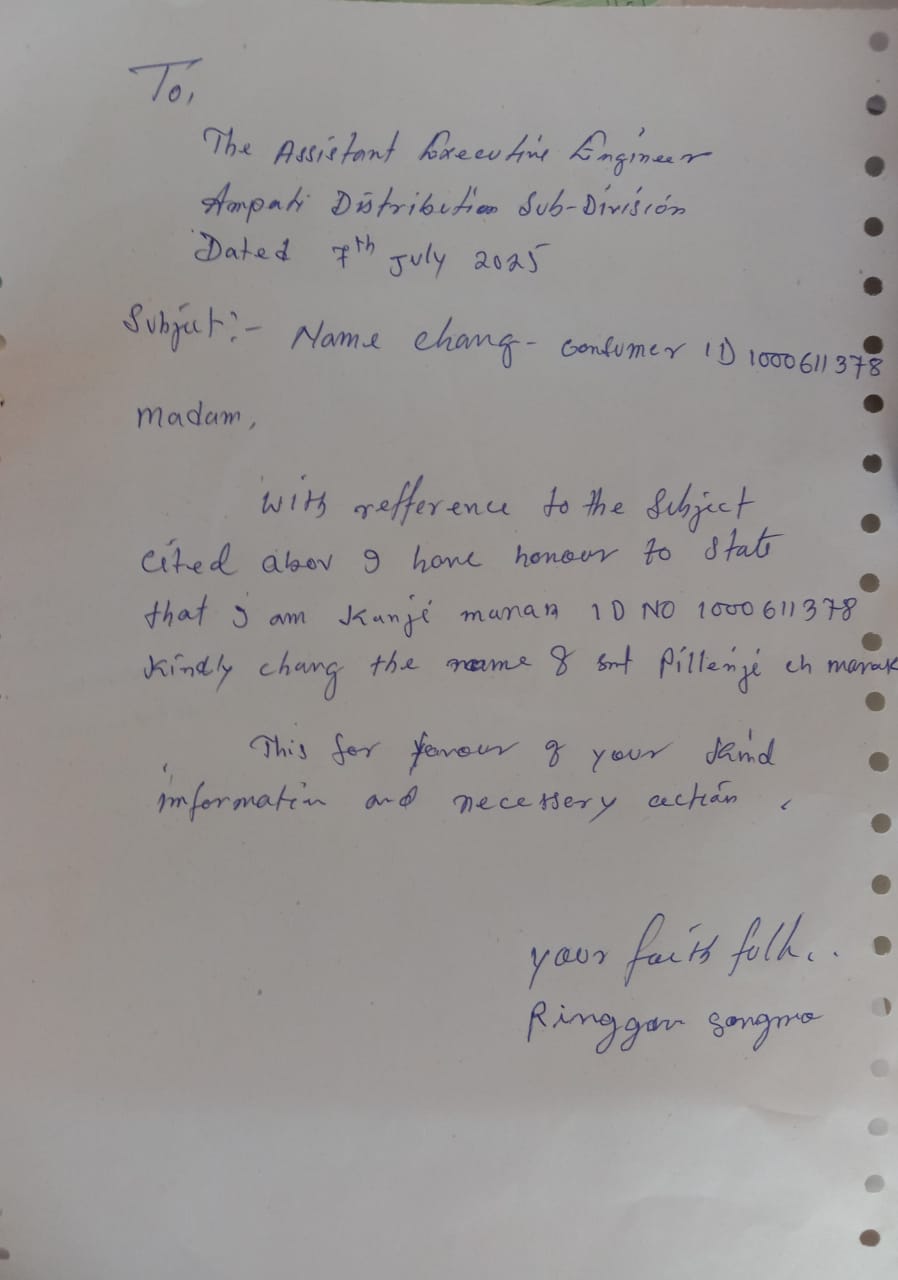 To,
The Assistant Executive Engineer
Ampati Distribution Sub-Division
Dated 7th July 2025
Subject:- Name chang - Consumer ID 1000611378
Madam,
With refference to the Subject
Cited abov I have honour to State
that I am Kanje ID NO 1000611378
Kindly chang the name smt Pillenje ch marak
This for favour of your kind
information and necessery action.
your faith
Ringgan Sangma